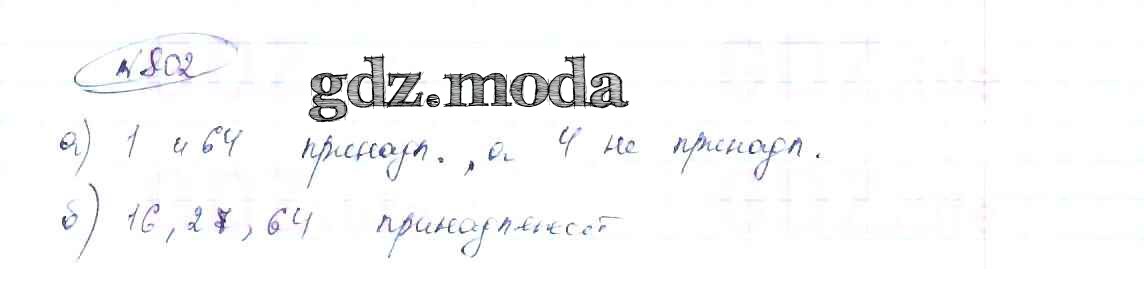 №802
gdz.moda
а) 1 и 64 принадл., а 4 не принадл.
б) 16, 27, 64 принадлежат